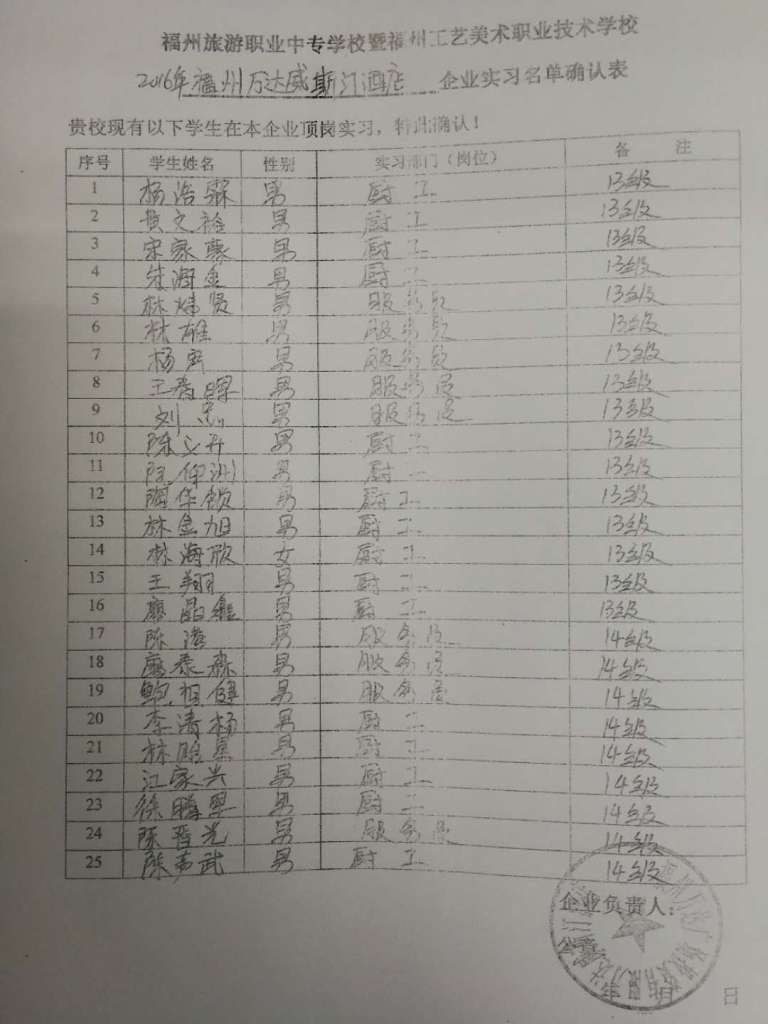 福州旅游职业中专学校暨福州工艺美术职业技术学校
2016年福州万达威斯汀酒店 企业实习名单确认表
贵校现有以下学生在本企业顶岗实习，特此确认！
序号 学生姓名 性别 实习部门（岗位） 备 注
1 杨浩霖 男 厨工 13级
2 黄文裕 男 厨工 13级
3 宋家豪 男 厨工 13级
4 朱海金 男 厨工 13级
5 林炜贤 男 服务员 13级
6 林雄 男 服务员 13级
7 杨 男 服务员 13级
8 王晋晖 男 服务员 13级
9 刘 男 服务员 13级
10 陈义升 男 厨工 13级
11 仰洲 男 厨 13级
12 陶华锁 男 厨工 13级
13 林金旭 男 厨工 13级
14 林海欣 女 厨工 13级
15 王翔 男 厨工 13级
16 廖晶 男 厨工 13级
17 陈 男 服务员 14级
18 廖泰森 男 服务员 14级
19 鲍相健 男 服务员 14级
20 李清杨 男 厨工 14级
21 林 男 厨工 14级
22 江家兴 男 厨工 14级
23 徐腾 男 厨工 14级
24 陈晋光 男 服务员 14级
25 陈尹武 男 厨工 14级
企业负责人：
公章
年 月 日